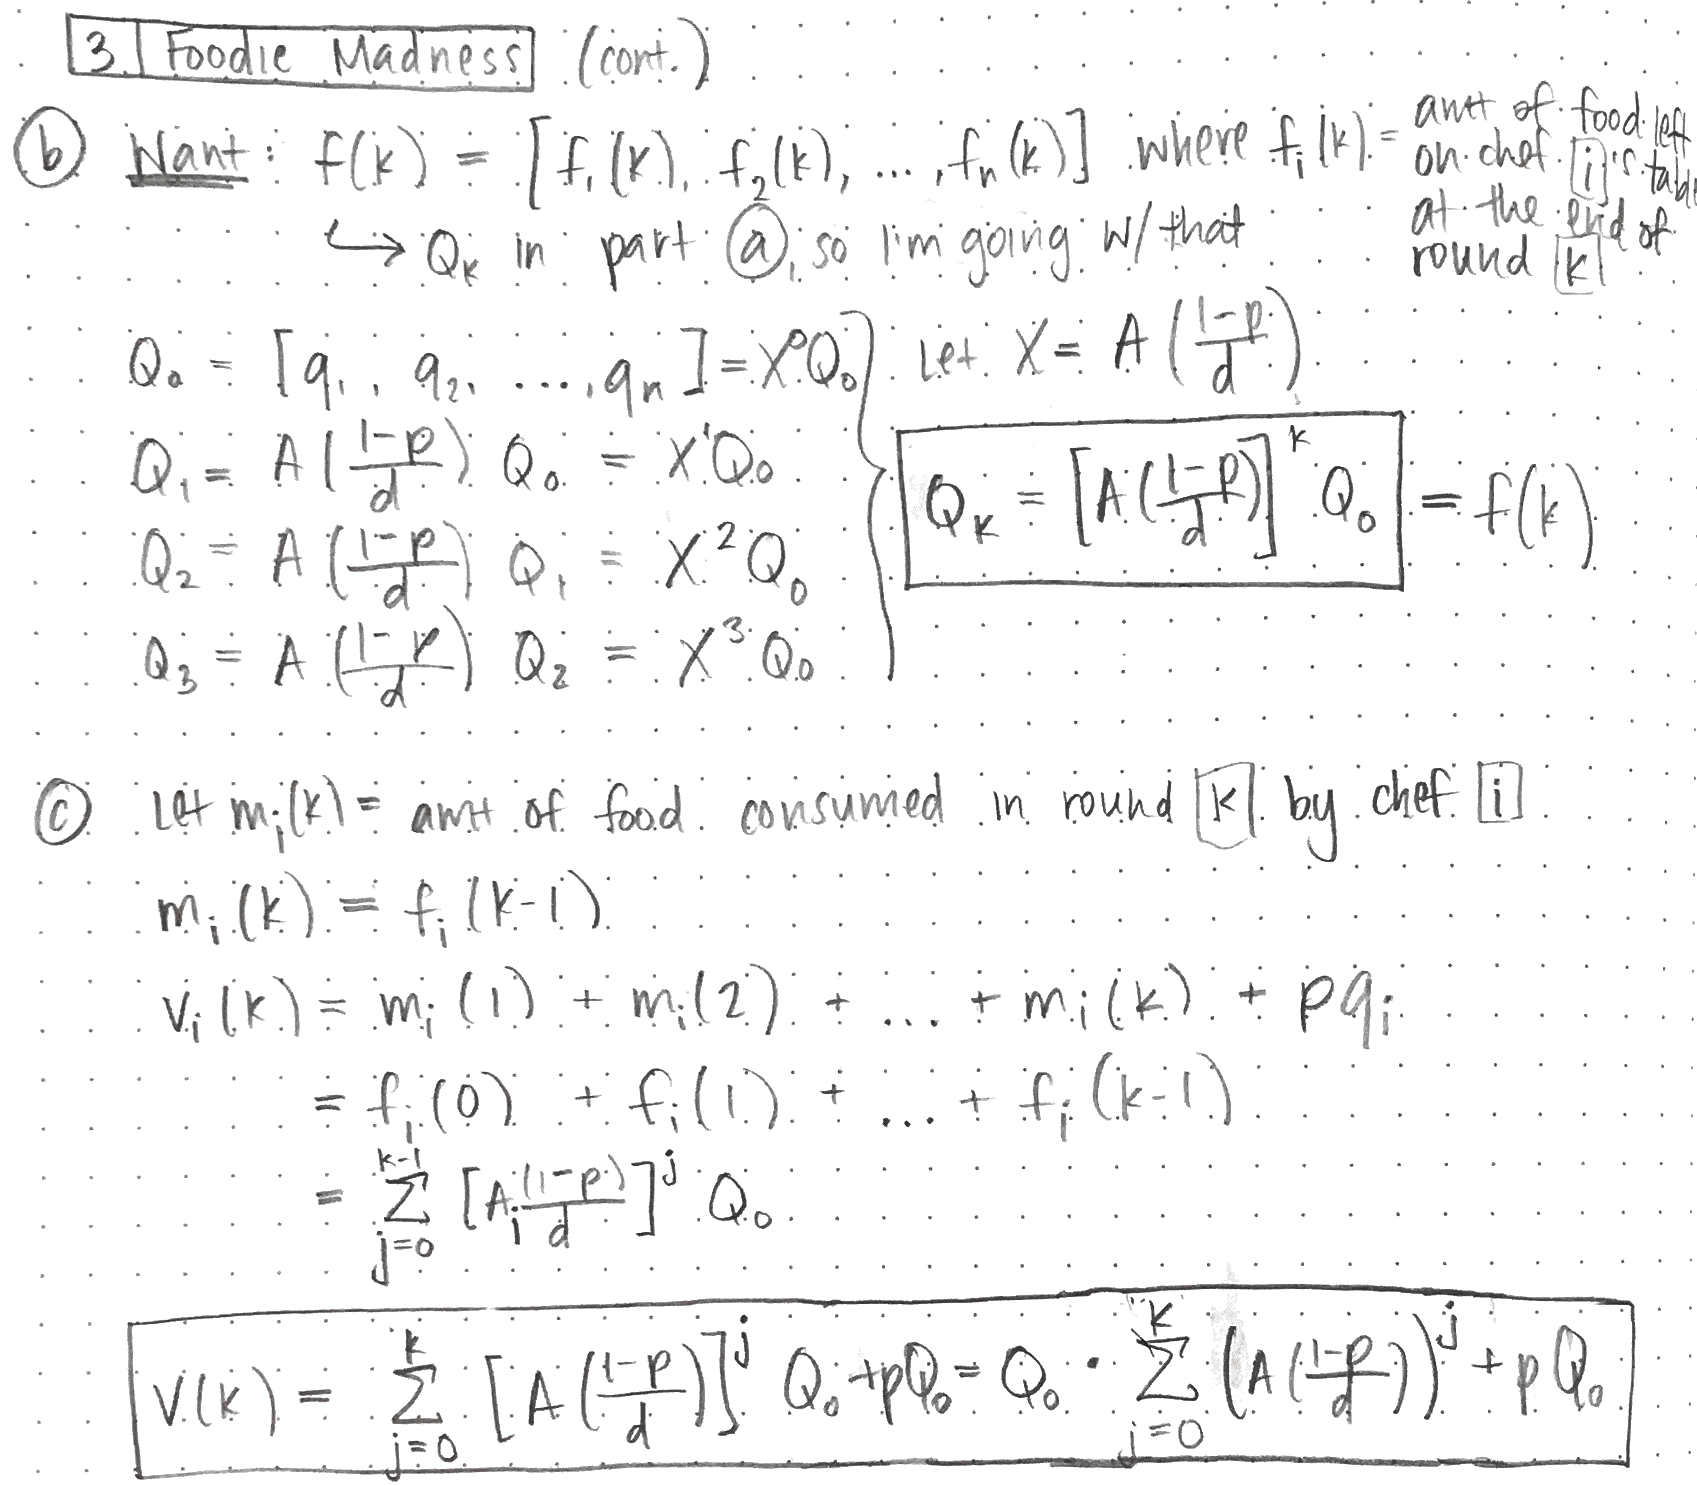 3. Foodie Madness (cont.)
ⓑ Want: f(k) = [f₁(k), f₂(k), ..., fₙ(k)] where fᵢ(k) = amt of food left on chef [i]'s table at the end of round [k]
↳ Qₖ in part ⓐ, so I'm going w/ that
Q₀ = [q₁, q₂, ..., qₙ] = X⁰Q₀
Let X = A((1-p)/d)
Q₁ = A((1-p)/d) Q₀ = X¹Q₀
Qₖ = [A((1-p)/d)]ᵏ Q₀ = f(k)
Q₂ = A((1-p)/d) Q₁ = X²Q₀
Q₃ = A((1-p)/d) Q₂ = X³Q₀
ⓒ Let mᵢ(k) = amt of food consumed in round [k] by chef [i]
mᵢ(k) = fᵢ(k-1)
vᵢ(k) = mᵢ(1) + mᵢ(2) + ... + mᵢ(k) + pqᵢ
= fᵢ(0) + fᵢ(1) + ... + fᵢ(k-1)
= Σ_{j=0}^{k-1} [Aᵢ (1-p)/d]ʲ Q₀
V(k) = Σ_{j=0}^{k} [A((1-p)/d)]ʲ Q₀ + pQ₀ = Q₀ · Σ_{j=0}^{k} (A((1-p)/d))ʲ + pQ₀